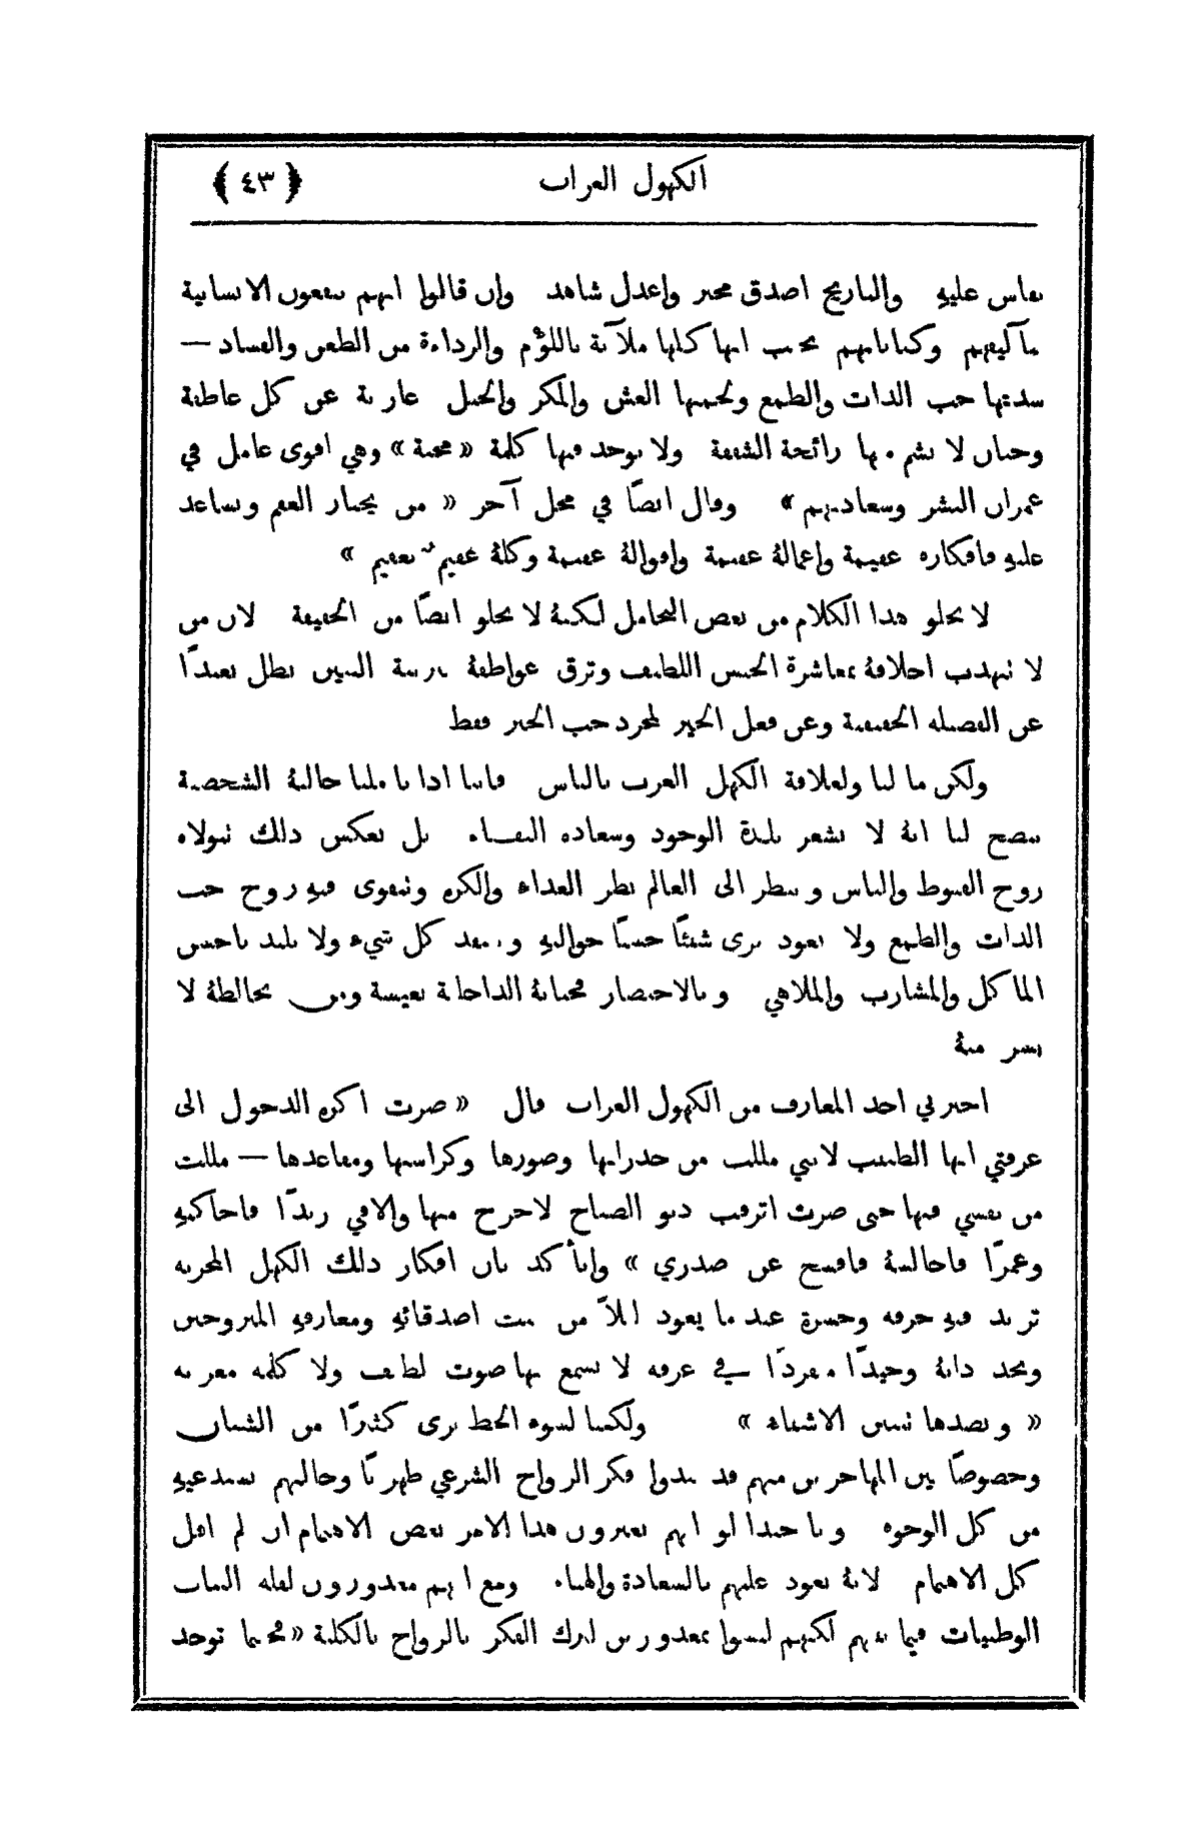 الكهول العزاب ﴿ ٤٣ ﴾
يقاس عليهِ والتاريخ اصدق مخبر واعدل شاهد وان قالوا انهم ينفعون الانسانية
بتآليفهم وكتاباتهم نجيب انها كلها ملآنة باللؤم والرداءة من الطعن والفساد —
سداتها حب الذات والطمع ولحمتها الغش والمكر والحيل عارية عن كل عاطفة
وحنان لا يشم بها رائحة الشفقة ولا يوجد فيها كلمة « محبة » وهي اقوى عامل في
عمران البشر وسعادتهم » وقال ايضًا في محل آخر « من يختار العقم ويساعد
عليهِ فافكاره عقيمة واعمالهُ عقيمة واقوالهُ عقيمة وكلهُ عقيم بعقيم »
لا يخلو هذا الكلام من بعض التحامل لكنهُ لا يخلو ايضًا من الحقيقة لان من
لا تتهذب اخلاقهُ بمعاشرة الجنس اللطيف وترق عواطفهُ بتربية البنين يظل بعيدًا
عن الفضيله الحقيقية وعن فعل الخير لمجرد حب الخير فقط
ولكن ما لنا ولعلاقة الكهل العزب بالناس فاننا اذا تأملنا حالتهُ الشخصية
يتضح لنا انهُ لا يشعر بلذة الوجود وسعاده البقاء بل بعكس ذلك تتولاه
روح القنوط والياس وينظر الى العالم نظر العداء والكره وتتقوى فيهِ روح حب
الذات والطمع ولا يعود يرى شيئًا حسنًا حواليهِ وينتقد كل شيء ولا يلتذ باحسن
الماكل والمشارب والملاهي وبالاختصار فحياتهُ الداخلية تعيسة ومن يخالطهُ لا
يسر منهُ
اخبرني احد المعارف من الكهول العزاب قال « صرت اكره الدخول الى
غرفتي ايها الطبيب لانني مللت من جدرانها وصورها وكراسيها ومقاعدها — مللت
من نفسي فيها حتى صرت اترقب دنو الصباح لاخرج منها والاقي زيدًا فاحاكيهِ
وعمرًا فاجالسهُ فافسح عن صدري » واتأكد بان افكار ذلك الكهل المحزنه
تزيد فيهِ حرقه وحسرة عند ما يعود ليلاً من بيت اصدقائهِ ومعارفهِ المتزوجين
ويجد ذاتهُ وحيدًا مفردًا في غرفه لا يسمع بها صوت لطيف ولا كلمه معزيه
« وبضدها تتبين الاشياء » ولكننا لسوء الحظ نرى كثيرًا من الشبان
وخصوصًا بين المهاجرين منهم قد نبذوا فكر الزواج الشرعي ظهريًا وحالتهم تستدعيهِ
من كل الوجوه ويا حبذا لو انهم يعيرون هذا الامر بعض الاهتمام ان لم اقل
كل الاهتمام لانهُ يعود عليهم بالسعادة والهناء ومع انهم معذورون لقله البنات
الوطنيات فيما بينهم لكنهم ليسوا بمعذورين لترك الفكر بالزواج بالكلية « فحيثما توجد